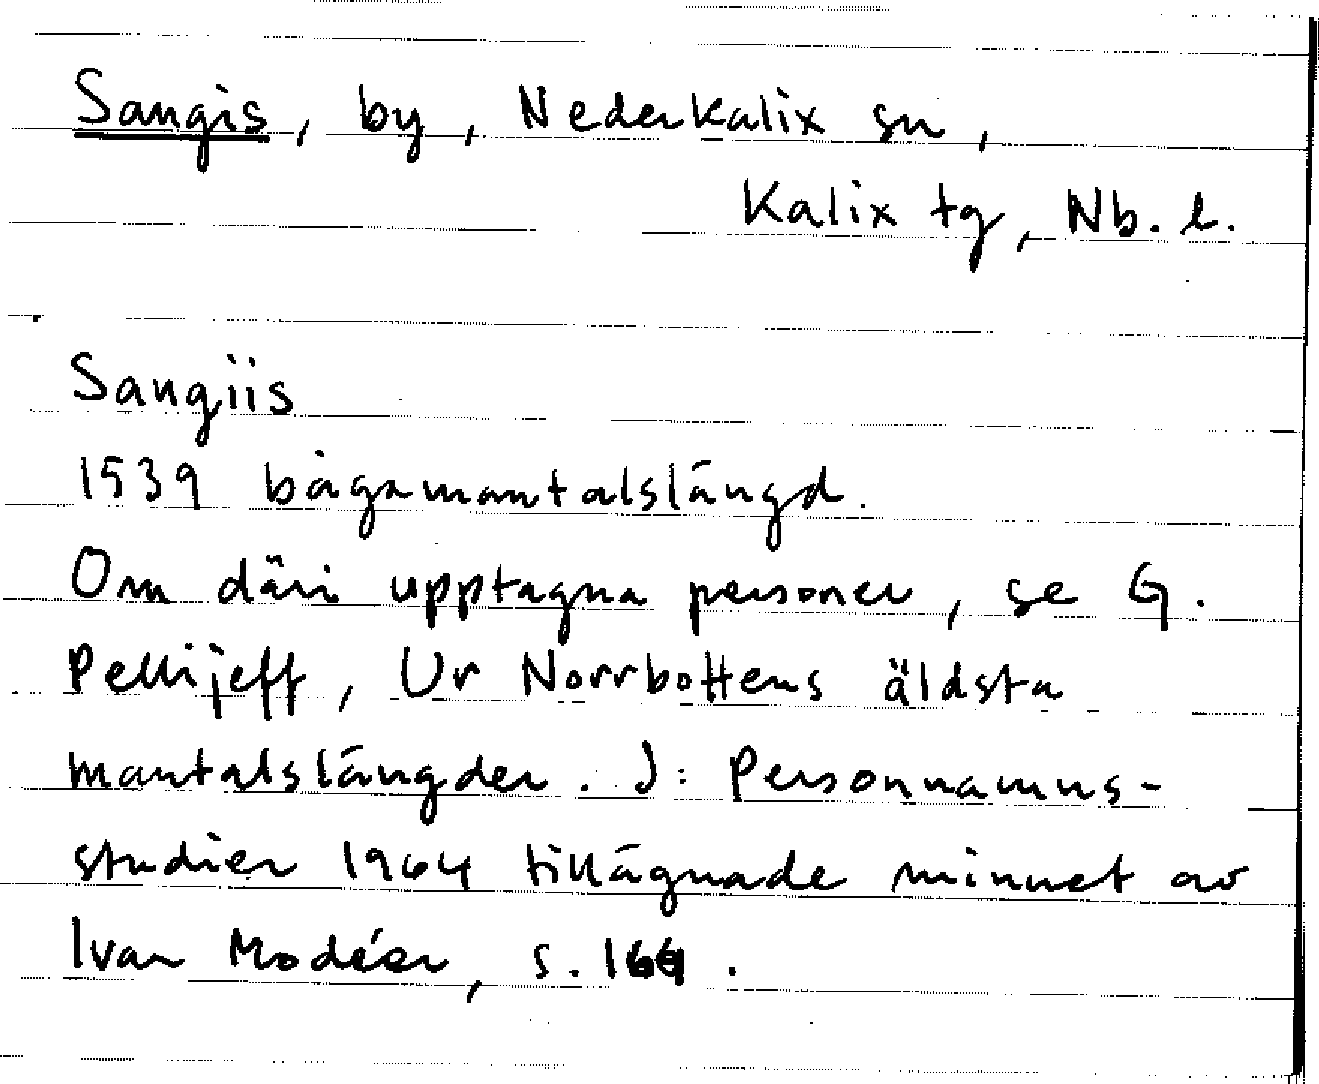 Sangis, by, Nederkalix sn,
Kalix tg, Nb. l.
Sangiis
1539 bågamantalslängd.
Om däri upptagna personer, se G.
Pellijeff, Ur Norrbottens äldsta
mantalslängder. I: Personnamns-
studier 1964 tillägnade minnet av
Ivar Modéer, s.